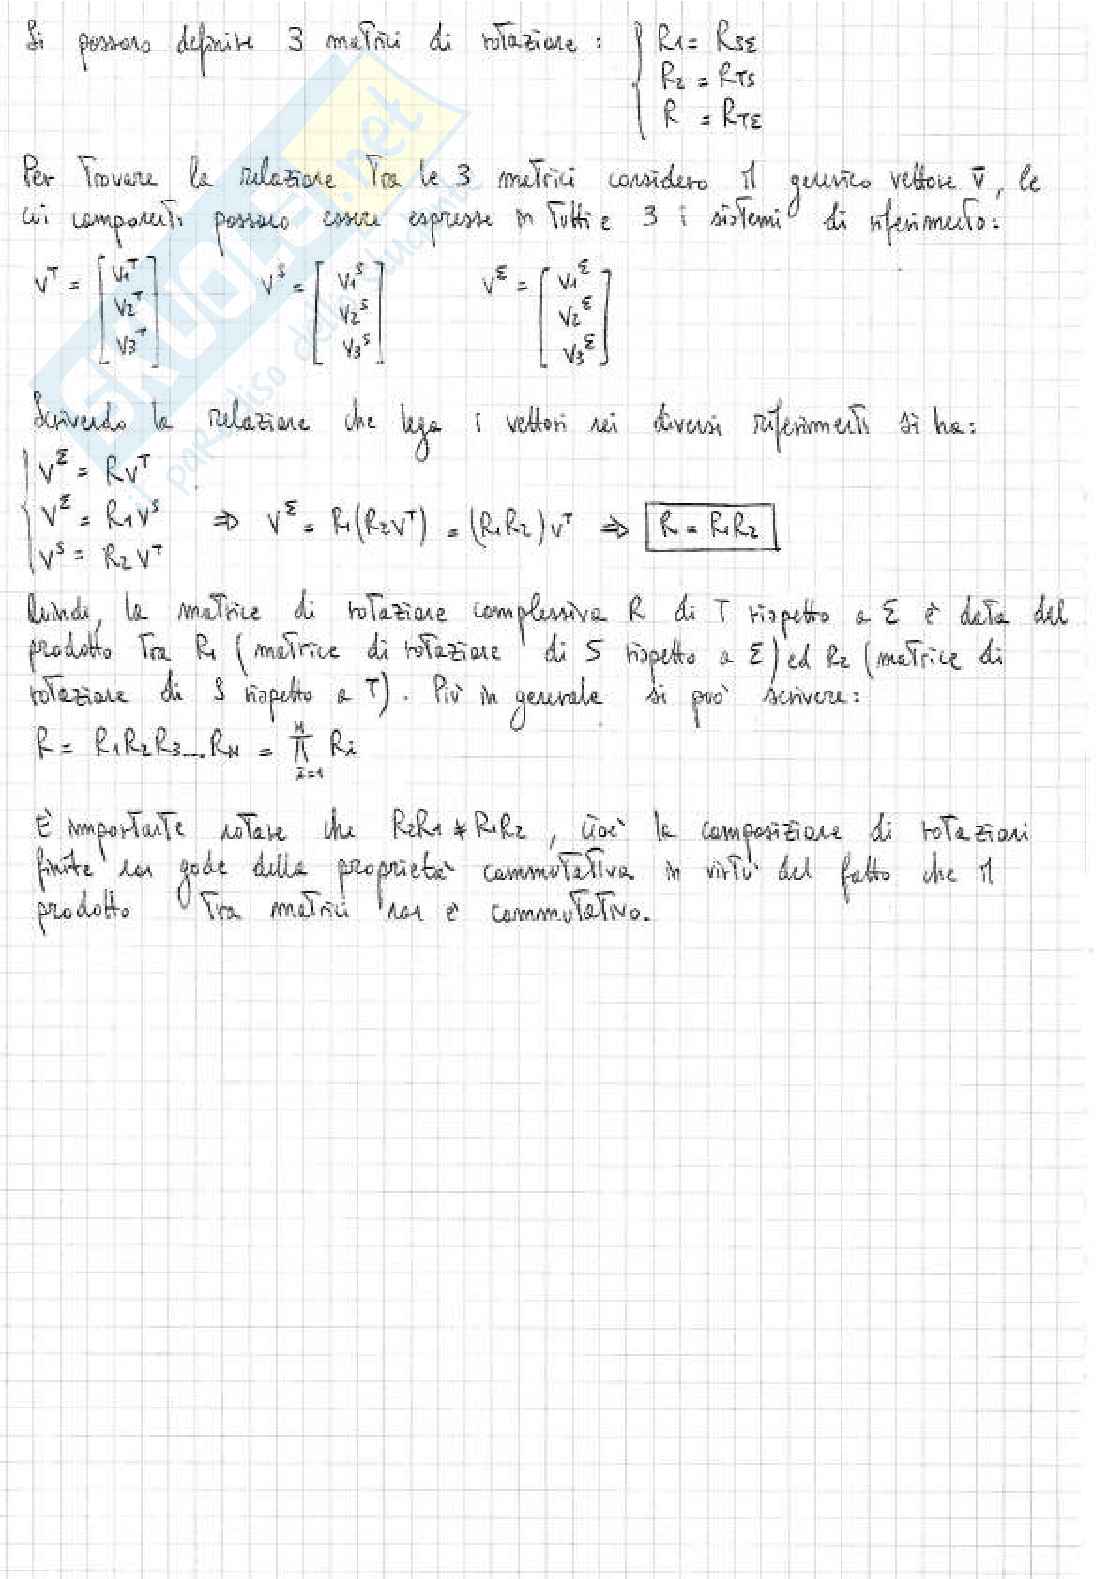 Si possono definire 3 matrici di rotazione : { R1 = RSΣ
R2 = RTS
R = RTΣ
Per Trovare la relazione Tra le 3 matrici considero il generico vettore v̄, le
cui componenti possono essere espresse in Tutti e 3 i sistemi di riferimento:
v^T = [v1^T v2^T v3^T] v^S = [v1^S v2^S v3^S] v^Σ = [v1^Σ v2^Σ v3^Σ]
Scrivendo la relazione che lega i vettori nei diversi riferimenti si ha:
v^Σ = Rv^T
v^Σ = R1v^S ⇒ v^Σ = R1(R2v^T) = (R1R2)v^T ⇒ R = R1R2
v^S = R2v^T
Quindi, la matrice di rotazione complessiva R di T rispetto a Σ è data dal
prodotto Tra R1 (matrice di rotazione di S rispetto a Σ) ed R2 (matrice di
rotazione di S rispetto a T). Più in generale si può scrivere:
R = R1R2R3...RN = ∏_{i=1}^{N} Ri
È importante notare che R2R1 ≠ R1R2, cioè la composizione di rotazioni
finite non gode della proprietà commutativa in virtù del fatto che il
prodotto Tra matrici non è commutativo.
SKUOLA.net
il paradiso dello studente